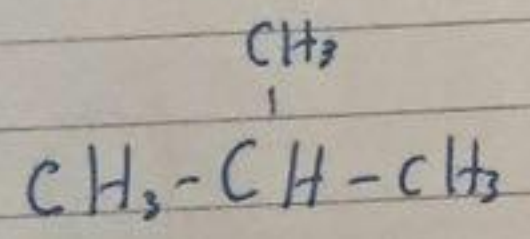 CH₃
|
CH₃-CH-CH₃